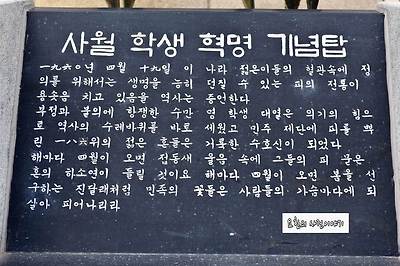 사월 학생 혁명 기념탑
一九六〇年 四月 十九일 이 나라 젊은이들의 혈관속에 정
의를 위해서는 생명을 능히 던질 수 있는 피의 전통이
용솟음 치고 있음을 역사는 증언한다
부정과 불의에 항쟁한 수만 명 학생 대열은 의기의 힘으
로 역사의 수레바퀴를 바로 세웠고 민주 제단에 피를 뿌
린 一八六위의 젊은 혼들은 거룩한 수호신이 되었다
해마다 四월이 오면 접동새 울음 속에 그들의 피 묻은
혼의 하소연이 들릴 것이요 해마다 四월이 오면 봄을 선
구하는 진달래처럼 민족의 꽃들은 사람들의 가슴마다에 되
살아 피어나리라